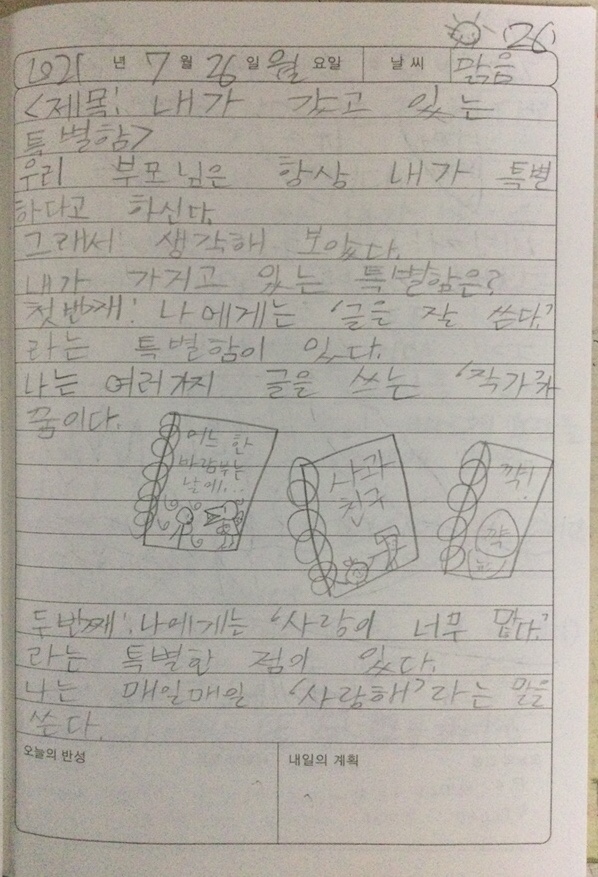 26
2021 년 7 월 26 일 월 요일 날 씨 맑음
<제목: 내가 갖고 있는
특별함>
우리 부모님은 항상 내가 특별
하다고 하신다.
그래서 생각해 보았다.
내가 가지고 있는 특별함은?
첫번째: 나에게는 '글을 잘 쓴다.'
라는 특별함이 있다.
나는 여러가지 글을 쓰는 '작가'가
꿈이다.
어느 한
바람부는
날에...
사과
친구
꺅!
두번째: 나에게는 '사랑이 너무 많다.'
라는 특별한 점이 있다.
나는 매일매일 '사랑해'라는 말을
쓴다.
오늘의 반성 내일의 계획